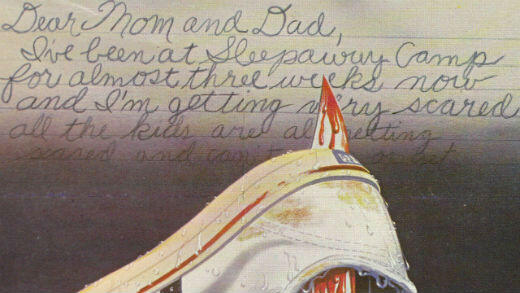 Dear Mom and Dad,
I've been at Sleepaway Camp
for almost three weeks now
and I'm getting very scared
all the kids are all getting
scared and can't